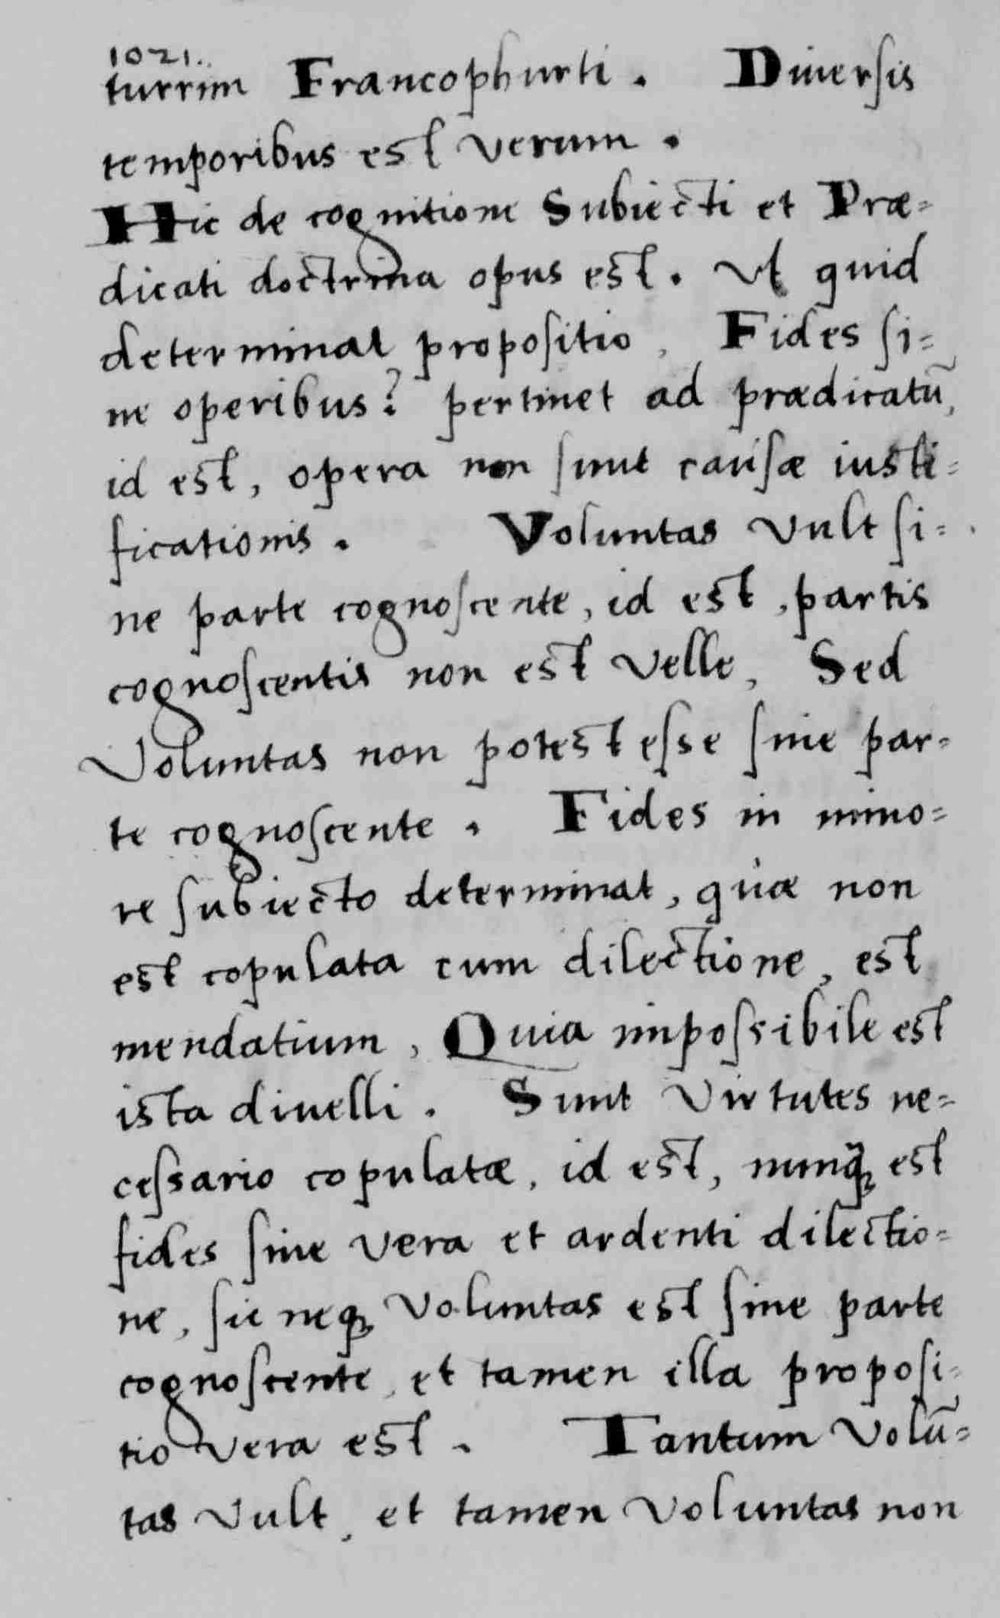 1021.
turrim Francophurti. Diuersis
temporibus est verum.
Hic de cognitione Subiecti et Præ=
dicati doctrina opus est. Ut quid
determinat propositio, Fides si=
ne operibus? pertinet ad prædicatū,
id est, opera non sunt causæ iusti=
ficationis. Voluntas vult si=
ne parte cognoscente, id est, partis
cognoscentis non est velle, Sed
Voluntas non potest esse sine par=
te cognoscente. Fides in mino=
re subiecto determinat, quæ non
est copulata cum dilectione, est
mendatium, Quia impossibile est
ista diuelli. Sunt Virtutes ne=
cessario copulatæ, id est, nunq̃ est
fides sine vera et ardenti dilectio=
ne, sic neqꝫ Voluntas est sine parte
cognoscente, et tamen illa proposi=
tio vera est. Tantum Volū=
tas vult, et tamen voluntas non